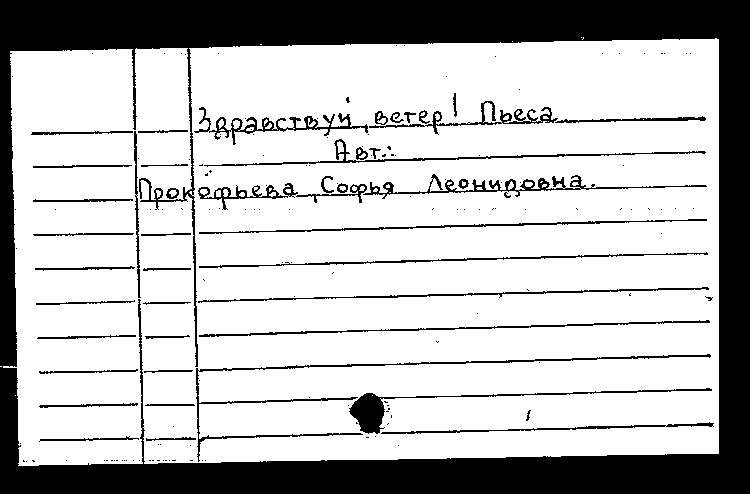 Здравствуй, ветер! Пьеса
Авт.:
Прокофьева, Софья Леонидовна.